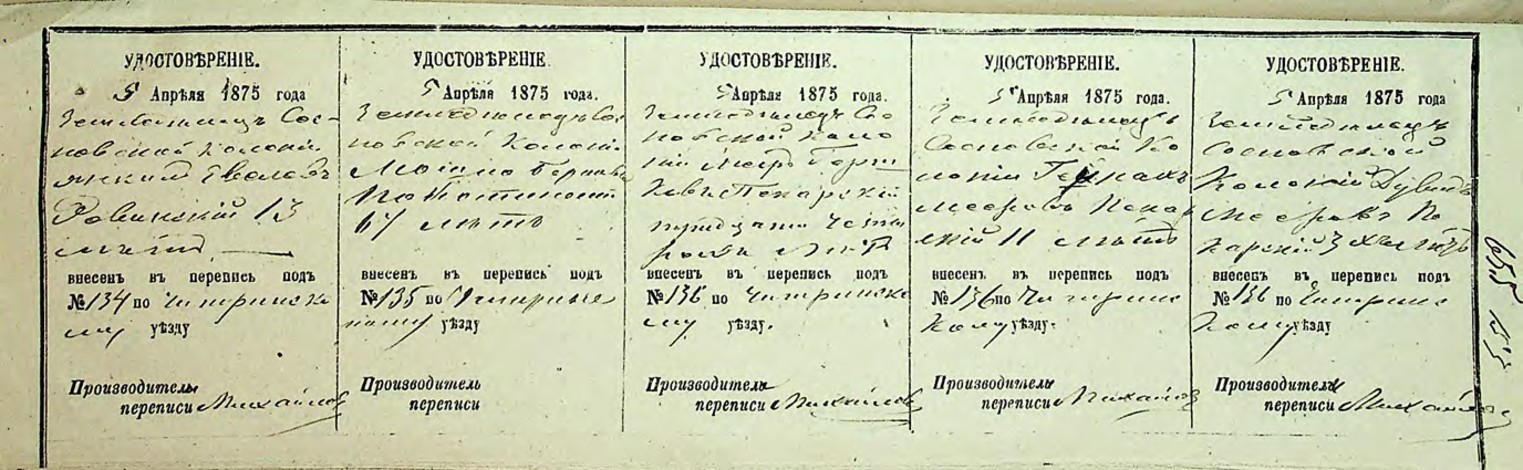 УДОСТОВѢРЕНІЕ.
5 Апрѣля 1875 года
Земледѣлецъ Сос-
новской Колоніи
13
лѣтъ
внесенъ въ перепись подъ
№134 по Чигринско
му уѣзду
Производитель
переписи Михайлов
УДОСТОВѢРЕНІЕ
5 Апрѣля 1875 года.
Земледѣлецъ Сос
новской Колоніи
67 лѣтъ
внесенъ въ перепись подъ
№135 по Чигринс
кому уѣзду
Производитель
переписи
УДОСТОВѢРЕНІЕ.
5 Апрѣля 1875 года.
Земледѣлецъ Сос
новской Коло
ніи Меер Герш
ковъ Пекарскій
тридцати четы
рехъ лѣтъ
внесенъ въ перепись подъ
№136 по Чигринско
му уѣзду.
Производитель
переписи Михайлов
УДОСТОВѢРЕНІЕ.
5 Апрѣля 1875 года.
Земледѣлецъ
Сосновской Ко
лоніи
Мееровъ Пекар
скій 11 лѣтъ
внесенъ въ перепись подъ
№136 по Чигринс
кому уѣзду.
Производитель
переписи Михайлов
УДОСТОВѢРЕНІЕ.
5 Апрѣля 1875 года
Земледѣлецъ
Сосновской
Колоніи Дувидъ
Мееровъ Пе
карскій 3хъ лѣтъ
внесенъ въ перепись подъ
№136 по Чигринс
кому уѣзду
Производитель
переписи Михайлов